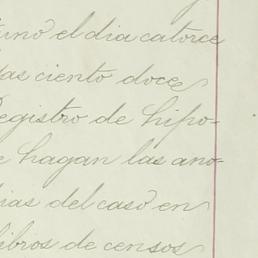 uno el dia catorce
as ciento doce
egistro de hipo-
e hagan las ano-
ias del caso en
libros de censos